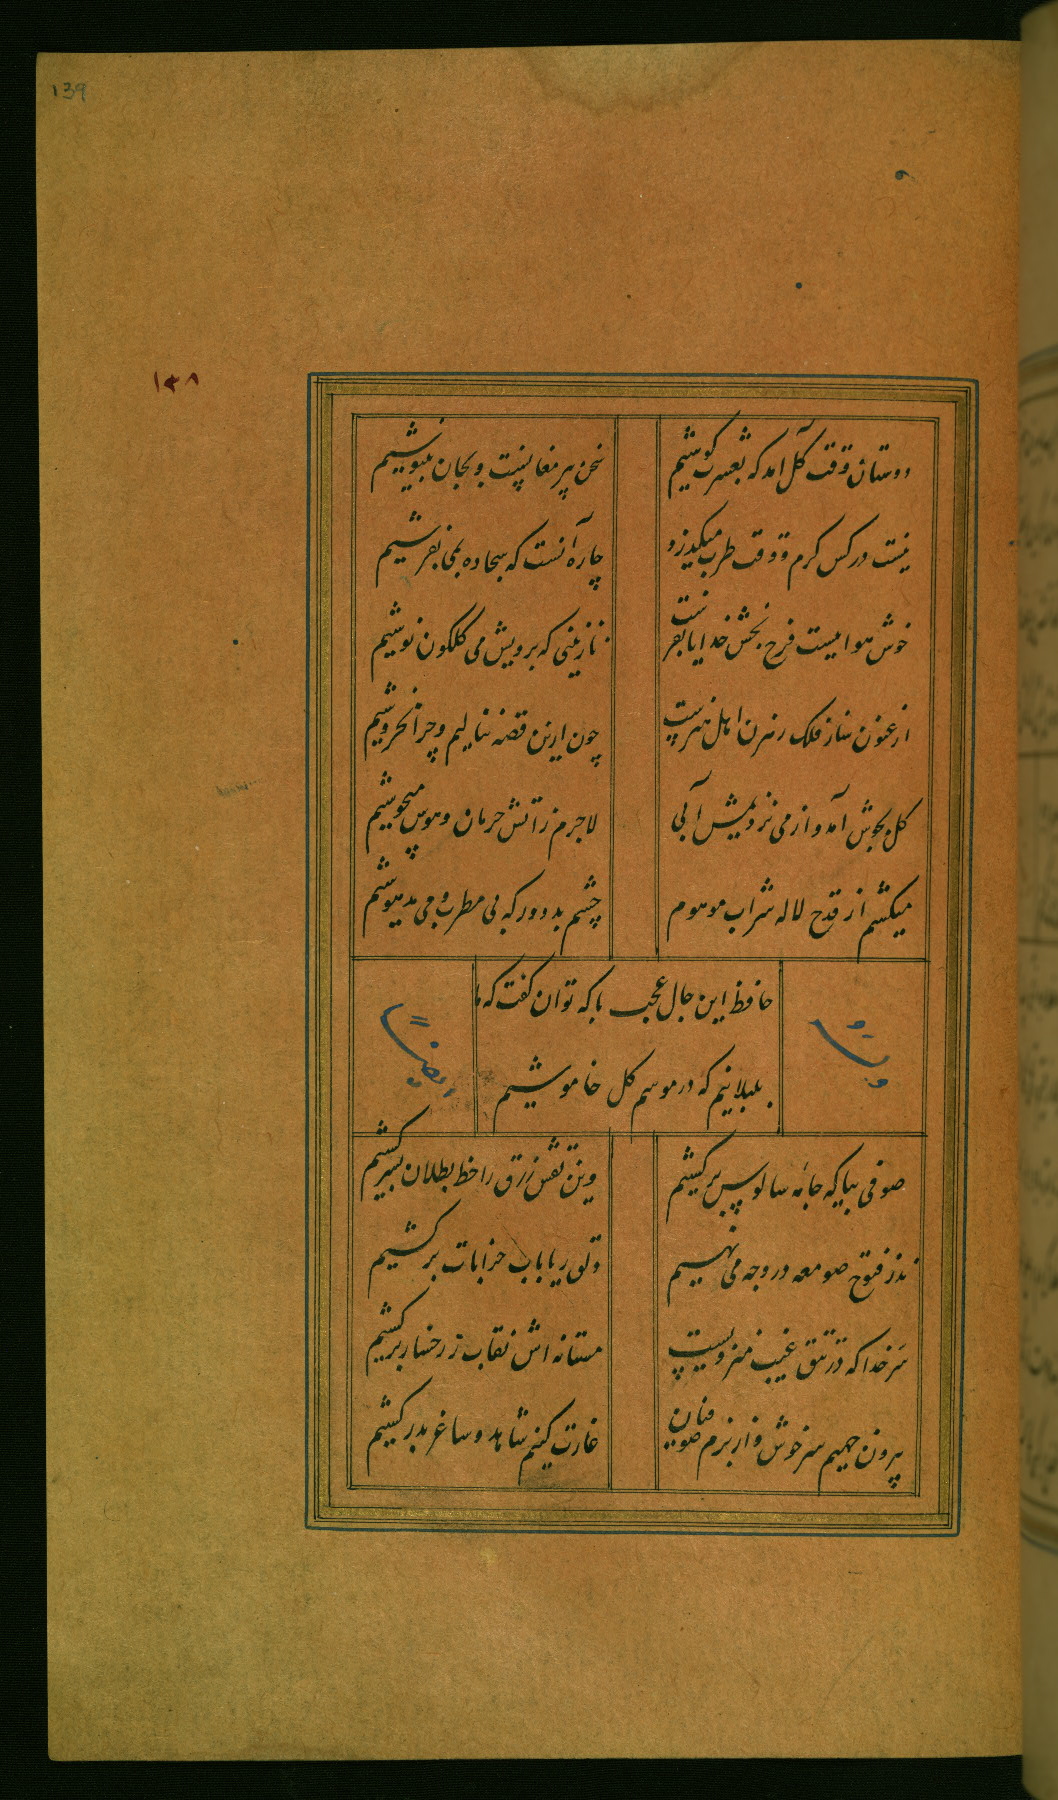 139
۱۳۸
دوستان وقت گل آمد که بعشرت کوشیم
سخن پیر مغانست و بجان بنیوشیم
نیست در کس کرم و وقت طرب میگذرد
چاره آنست که سجاده بمی بفروشیم
خوش هواییست فرح بخش خدایا بفرست
نازنینی که برویش می گلگون نوشیم
ارغنون ساز فلک رهزن اهل هنرست
چون ازین قصه ننالیم و چرا نخروشیم
گل بجوش آمد و از می نزدیمش آبی
لاجرم ز آتش حرمان و هوس میجوشیم
میکشیم از قدح لاله شراب موهوم
چشم بد دور که بی مطرب و می مدهوشیم
حافظ این حال عجب با که توان گفت که ما
بلبلانیم که در موسم گل خاموشیم
وله
ایضا
صوفی بیا که جامه سالوس برکشیم
وین نقش زرق را خط بطلان بسر کشیم
نذر فتوح صومعه در وجه می نهیم
دلق ریا بآب خرابات برکشیم
سر خدا که در تتق غیب منزویست
مستانه اش نقاب ز رخسار برکشیم
بیرون جهیم سرخوش و از بزم صوفیان
غارت کنیم شاهد و ساغر بدر کشیم